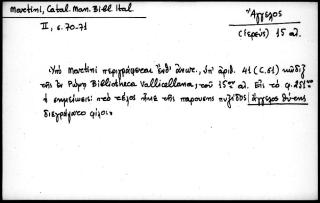 Martini, Catal. Man. Bibl. Ital.
II, s. 70-71
Ἄγγελος
(ἱερεύς) 15 αἰ.
Ὑπὸ Martini περιγράφεται ἔνθ' ἀνωτ., ὑπ' ἀριθ. 41 (C. 51) κῶδιξ
τῆς ἐν Ρώμῃ Bibliotheca Vallicellana, τοῦ 15ου αἰ. Εἰς τὸ φ. 251
ἡ σημείωσις: τὸ τέλος τῆς παρούσης πυξίδος | ἄγγελος θύτης
διεγράψατο φίλοι.